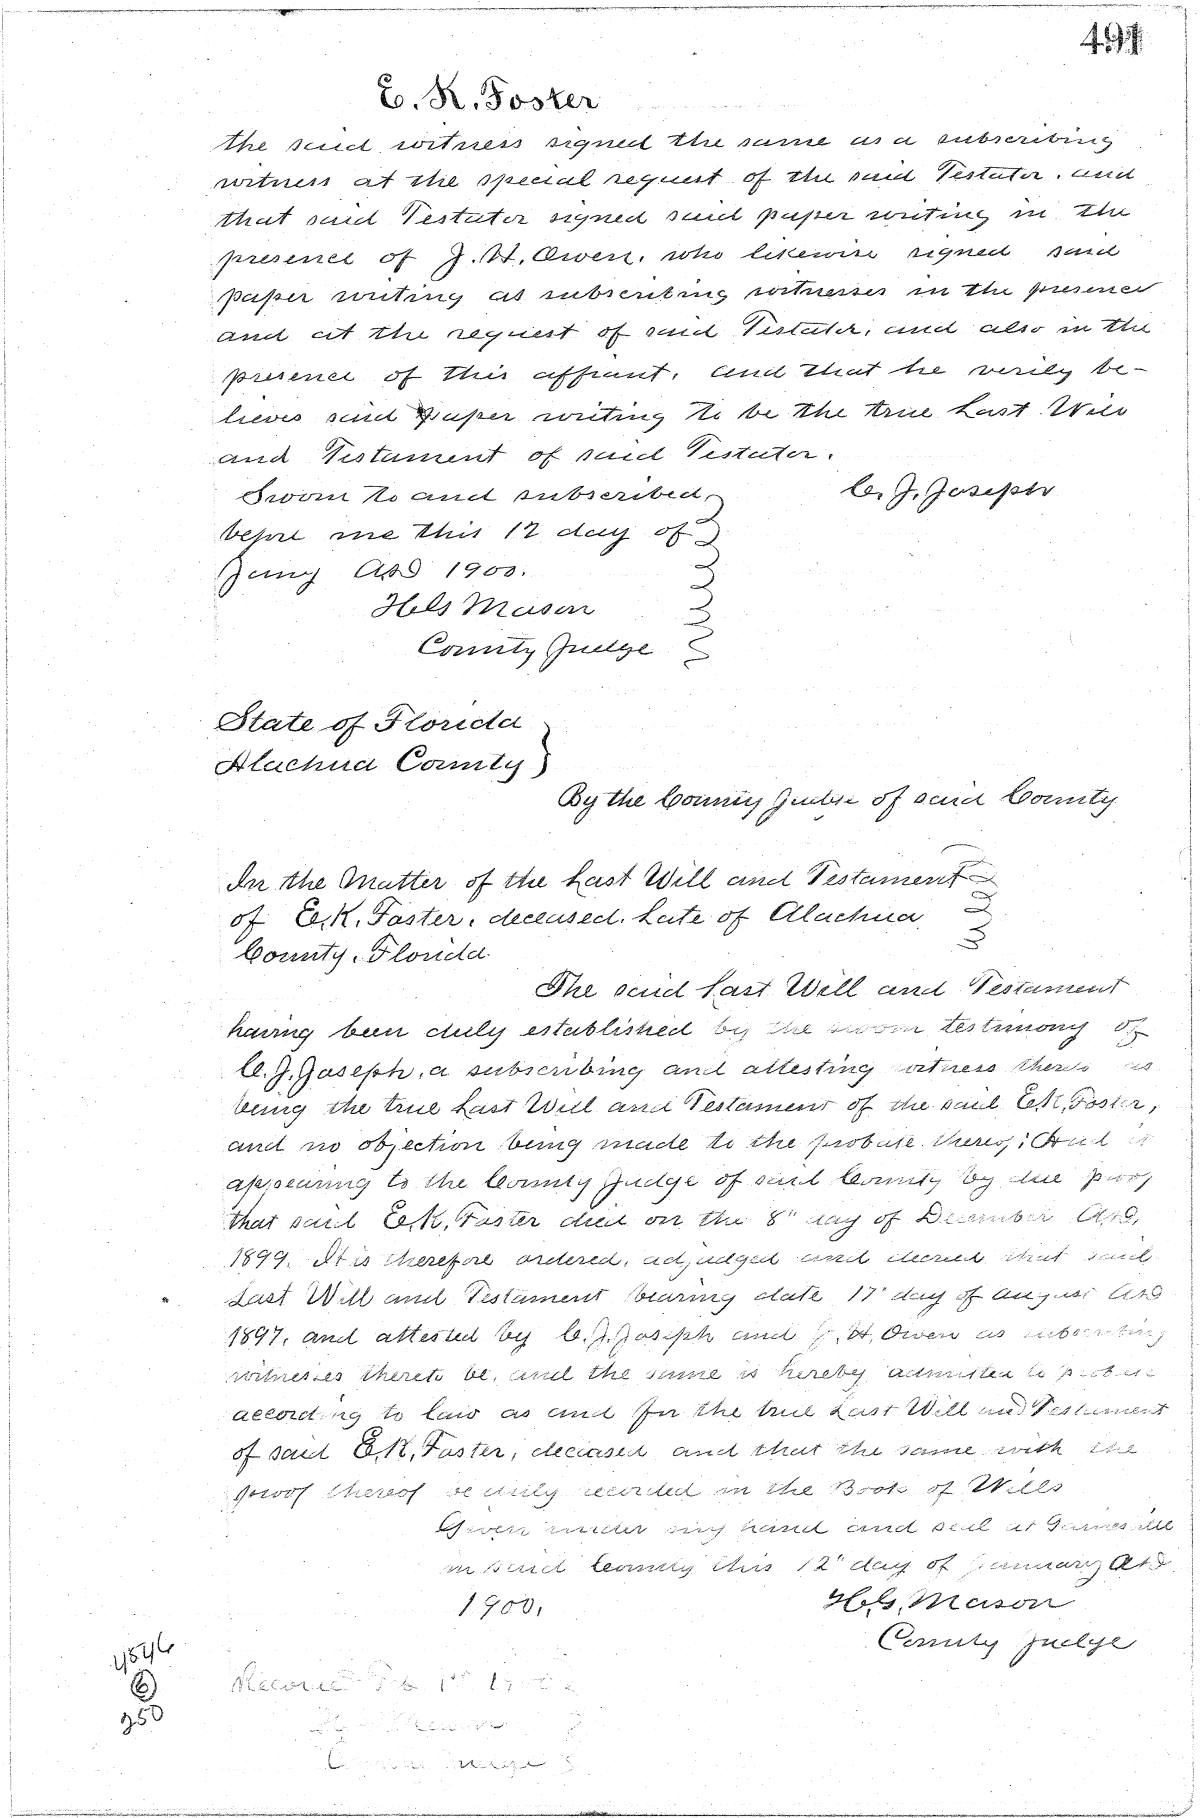 491
E. K. Foster
the said witness signed the same as a subscribing
witness at the special request of the said Testator. and
that said Testator signed said paper writing in the
presence of J. H. Owen. who likewise signed said
paper writing as subscribing witnesses in the presence
and at the request of said Testator, and also in the
presence of this affiant. and that he verily be-
lieves said paper writing to be the true Last Will
and Testament of said Testator.
Sworn to and subscribed C. J. Joseph
before me this 12 day of
Jany A.D 1900.
H.G. Mason
County Judge
State of Florida
Alachua County
By the County Judge of said County
In the Matter of the Last Will and Testament
of E.K. Foster. deceased. Late of Alachua
County. Florida.
The said Last Will and Testament
having been duly established by the sworn testimony of
C. J. Joseph. a subscribing and attesting witness thereto as
being the true Last Will and Testament of the said E.K. Foster,
and no objection being made to the probate thereof; And it
appearing to the County Judge of said County by due proof
that said E.K. Foster died on the 8" day of December A.D.
1899. It is therefore ordered, adjudged and decreed that said
Last Will and Testament bearing date 17" day of August A.D
1897. and attested by C. J. Joseph and J. H. Owen as subscribing
witnesses thereto be, and the same is hereby admitted to probate
according to law as and for the true Last Will and Testament
of said E.K. Foster, deceased and that the same with the
proof thereof be duly recorded in the Book of Wills
Given under my hand and seal at Gainesville
in said County this 12" day of January A.D
1900. H.G. Mason
County Judge
4846
6
350
Recorded Feb 1st
County Judge